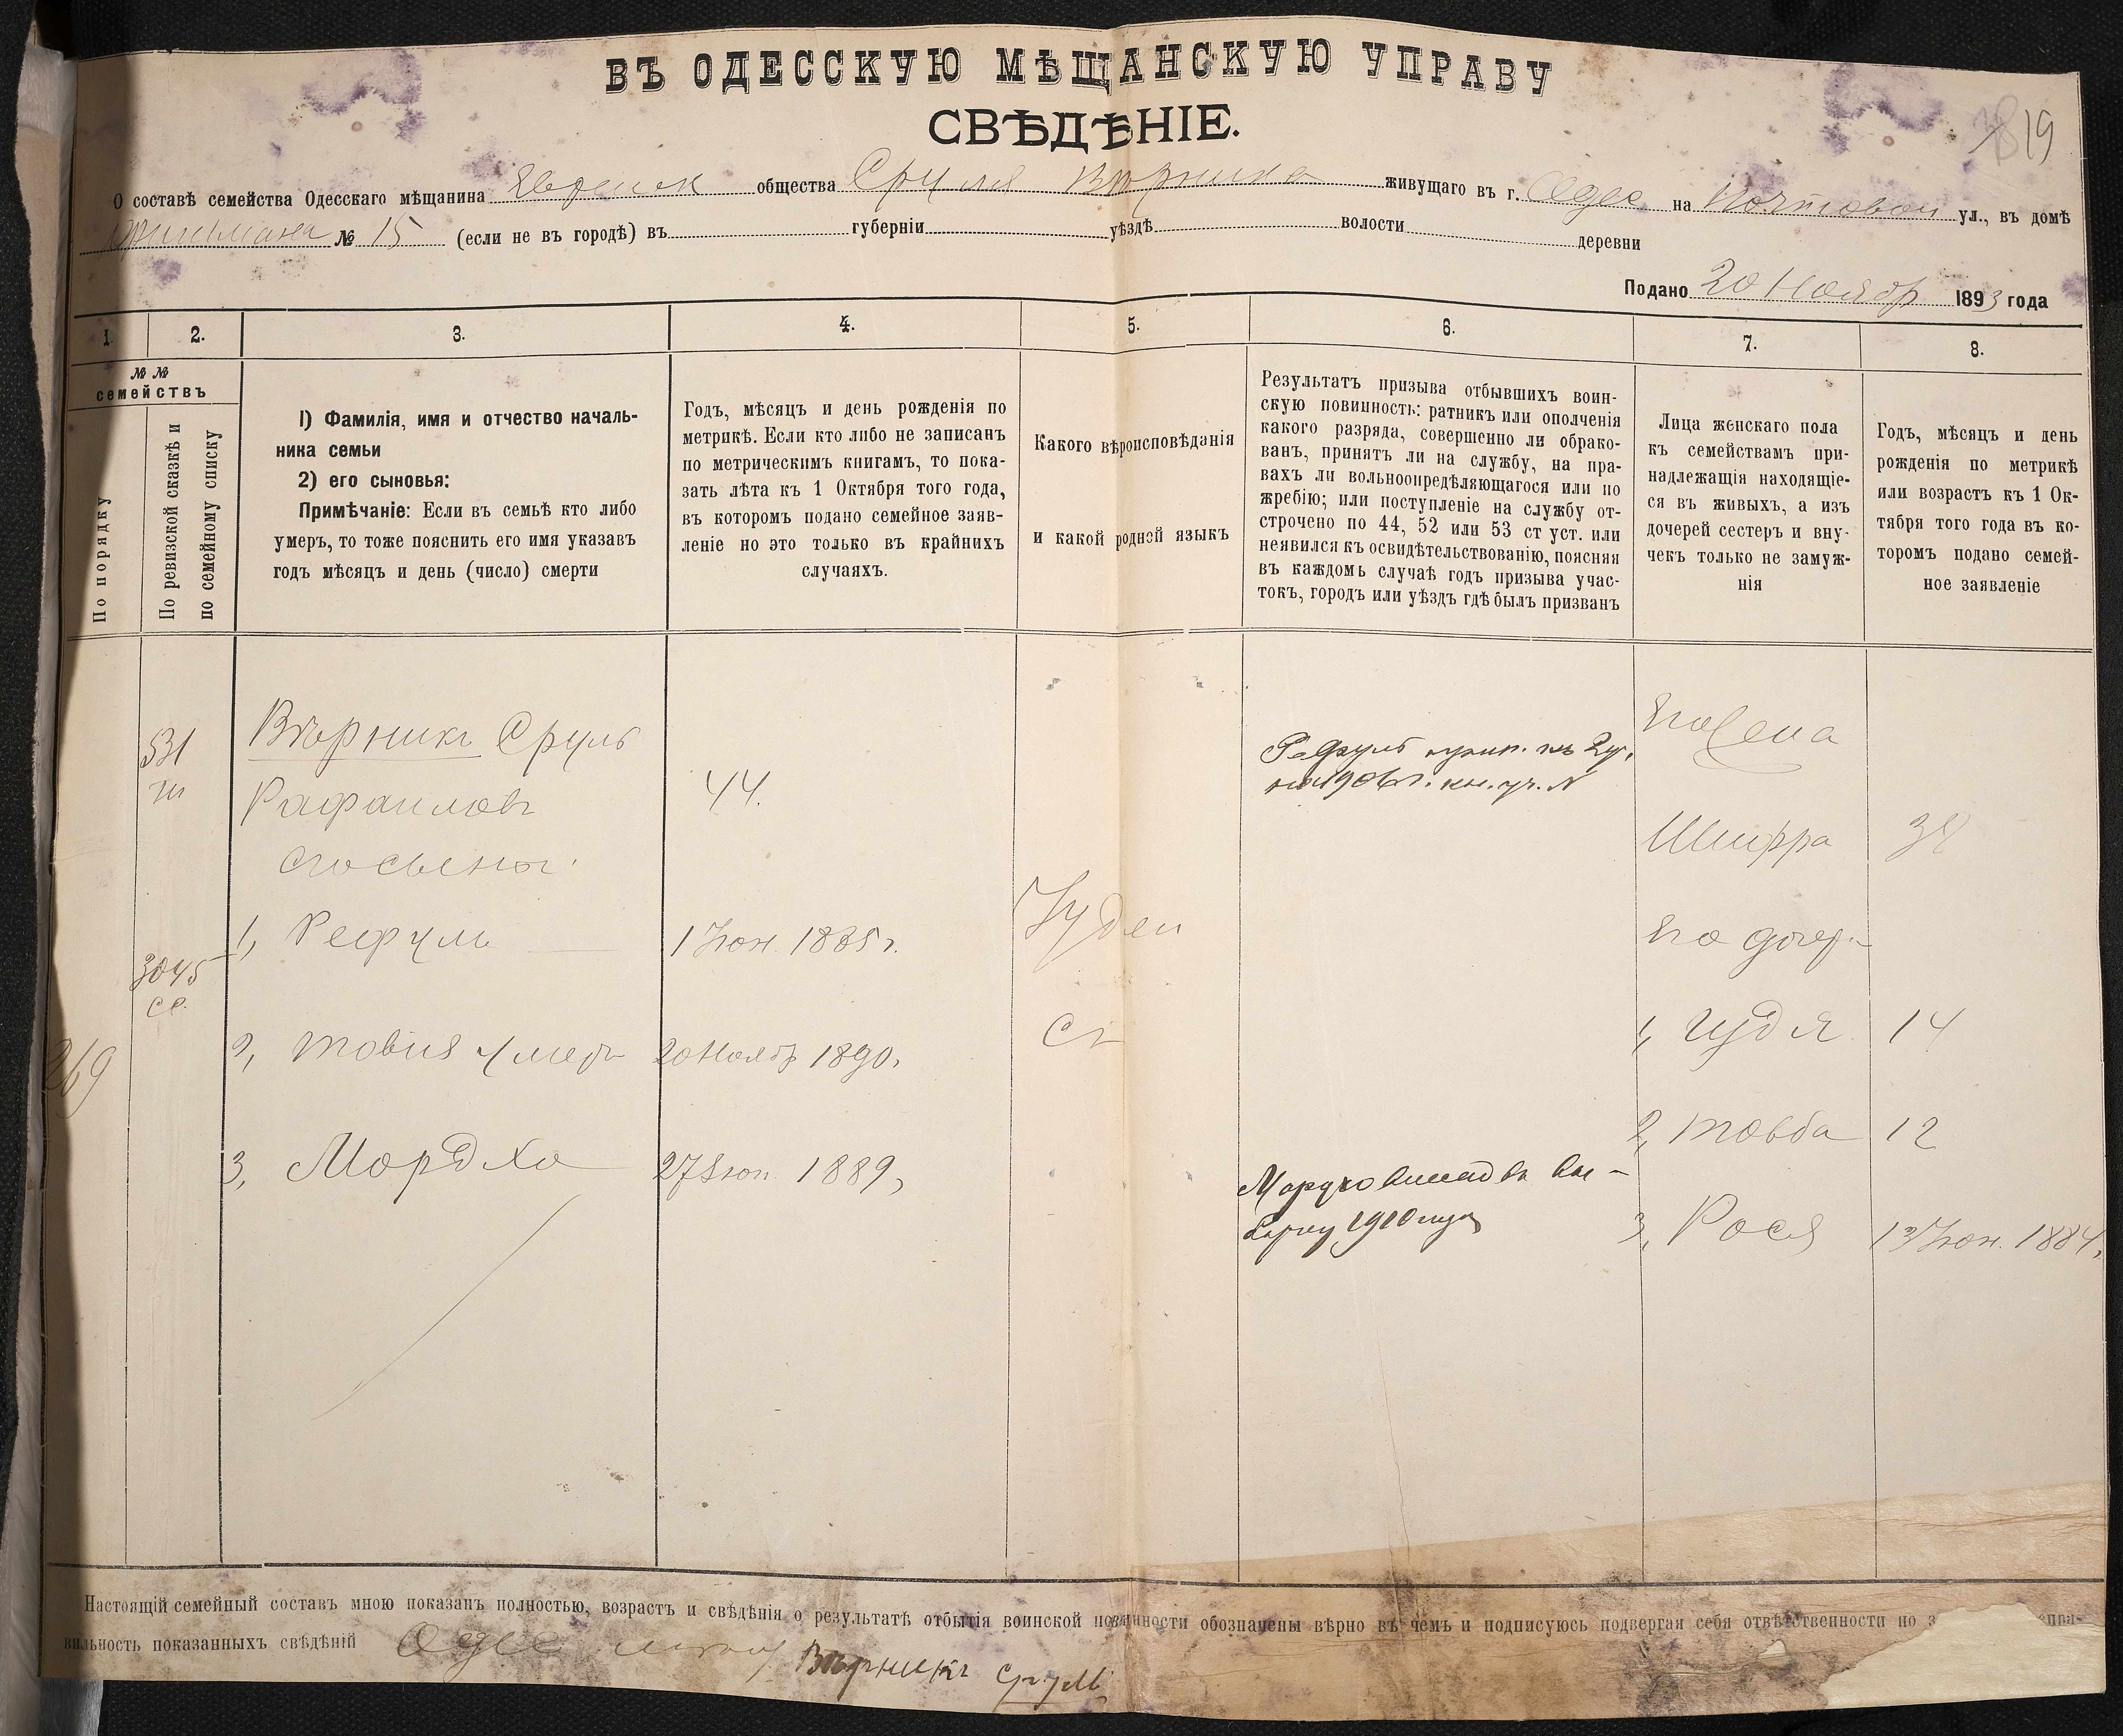 ВЪ ОДЕССКУЮ МѢЩАНСКУЮ УПРАВУ
СВѢДѢНІЕ.
19
О составѣ семейства Одесскаго мѣщанина Еврейск общества Сруля Вѣрника живущаго въ г. Одес на Почтовой ул., въ домѣ
№ 15 (если не въ городѣ) въ губерніи уѣздѣ волости деревни
Подано 20 Ноябр 1893 года
1. 2. 3. 4. 5. 6. 7. 8.
№ №
семействъ
По порядку
По ревизской сказкѣ и
по семейному списку
1) Фамилія, имя и отчество началь-
ника семьи
2) его сыновья:
Примѣчаніе: Если въ семьѣ кто либо
умеръ, то тоже пояснить его имя указавъ
годъ мѣсяцъ и день (число) смерти
Годъ, мѣсяцъ и день рожденія по
метрикѣ. Если кто либо не записанъ
по метрическимъ книгамъ, то пока-
зать лѣта къ 1 Октября того года,
въ которомъ подано семейное заяв-
леніе но это только въ крайнихъ
случаяхъ.
Какого вѣроисповѣданія
и какой родной языкъ
Результатъ призыва отбывшихъ воин-
скую повинность: ратникъ или ополченія
какого разряда, совершенно ли обрако-
ванъ, принятъ ли на службу, на пра-
вахъ ли вольноопредѣляющагося или по
жребію; или поступленіе на службу от-
строчено по 44, 52 или 53 ст уст. или
неявился къ освидѣтельствованію, поясняя
въ каждомъ случаѣ годъ призыва учас-
токъ, городъ или уѣздъ гдѣ былъ призванъ
Лица женскаго пола
къ семействамъ при-
надлежащія находящіе-
ся въ живыхъ, а изъ
дочерей сестеръ и вну-
чекъ только не замуж-
нія
Годъ, мѣсяцъ и день
рожденія по метрикѣ
или возрастъ къ 1 Ок-
тября того года въ ко-
торомъ подано семей-
ное заявленіе
531
Вѣрникъ Сруль
Рафаиловъ
44.
1, Рефуль
1 Іюн. 1885 г.
Іудей
3045
269
2, товия умеръ
20 Ноябр 1890,
3, Мордхо
27 Іюн. 1889,
Рефуль
1906 г.
Мордхо
1910 году
Шифра
Его дочер
1, Иудя 14
2, товба 12
3, Рося 13 Іюн. 1884,
Настоящій семейный составъ мною показанъ полностью, возрастъ и свѣдѣнія о результатѣ отбытія воинской повинности обозначены вѣрно въ чемъ и подписуюсь подвергая себя отвѣтственности по
вильность показанныхъ свѣдѣній Одес
Вѣрникъ Сруль